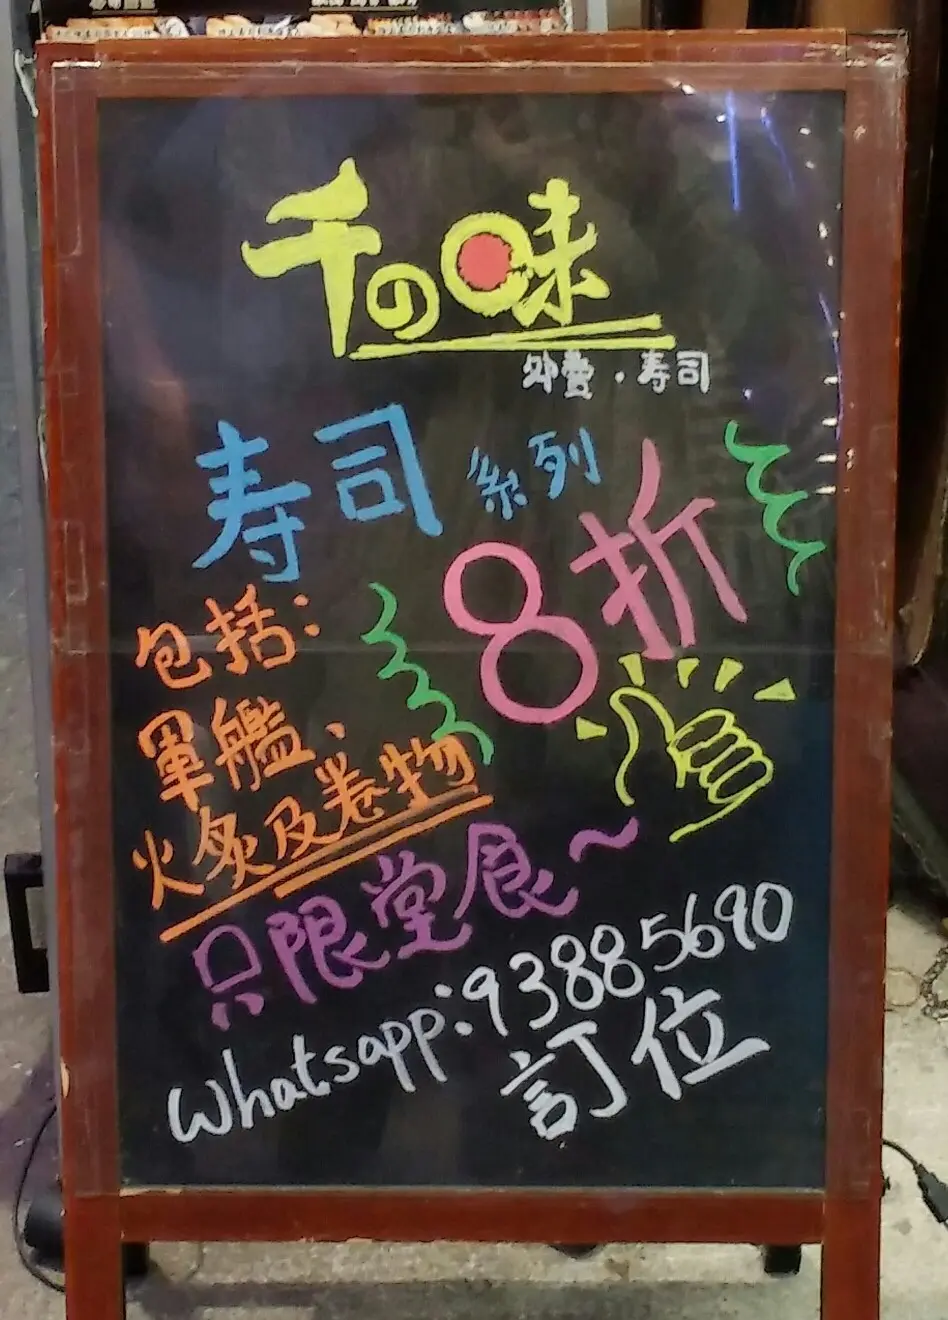 千の味
外賣・寿司
寿司系列
8折
包括:
軍艦、
火炙及卷物
只限堂食~
Whatsapp:93885690
訂位